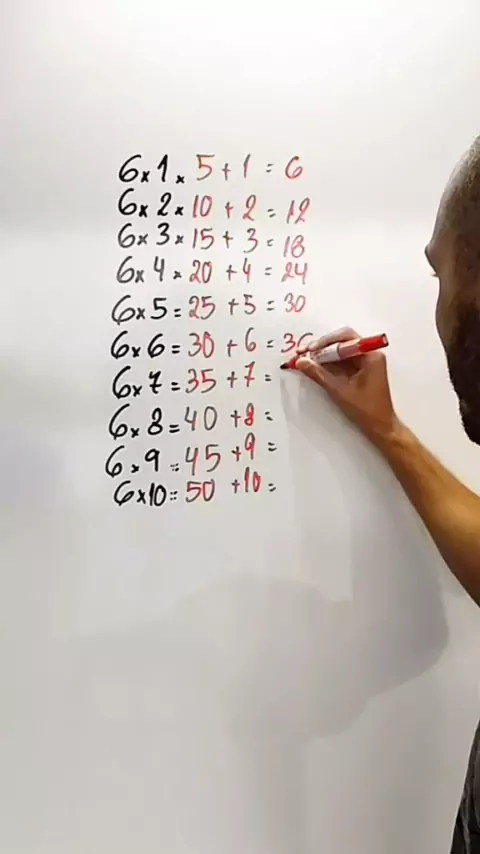 6x1x 5+1 = 6
6x2x10 + 2 = 12
6x3x15 + 3 = 18
6x4x20 + 4 = 24
6x5=25 +5 = 30
6x6=30 + 6 = 36
6x7=35 +7 =
6x8=40 +8 =
6x9=45 +9 =
6x10=50 +10 =